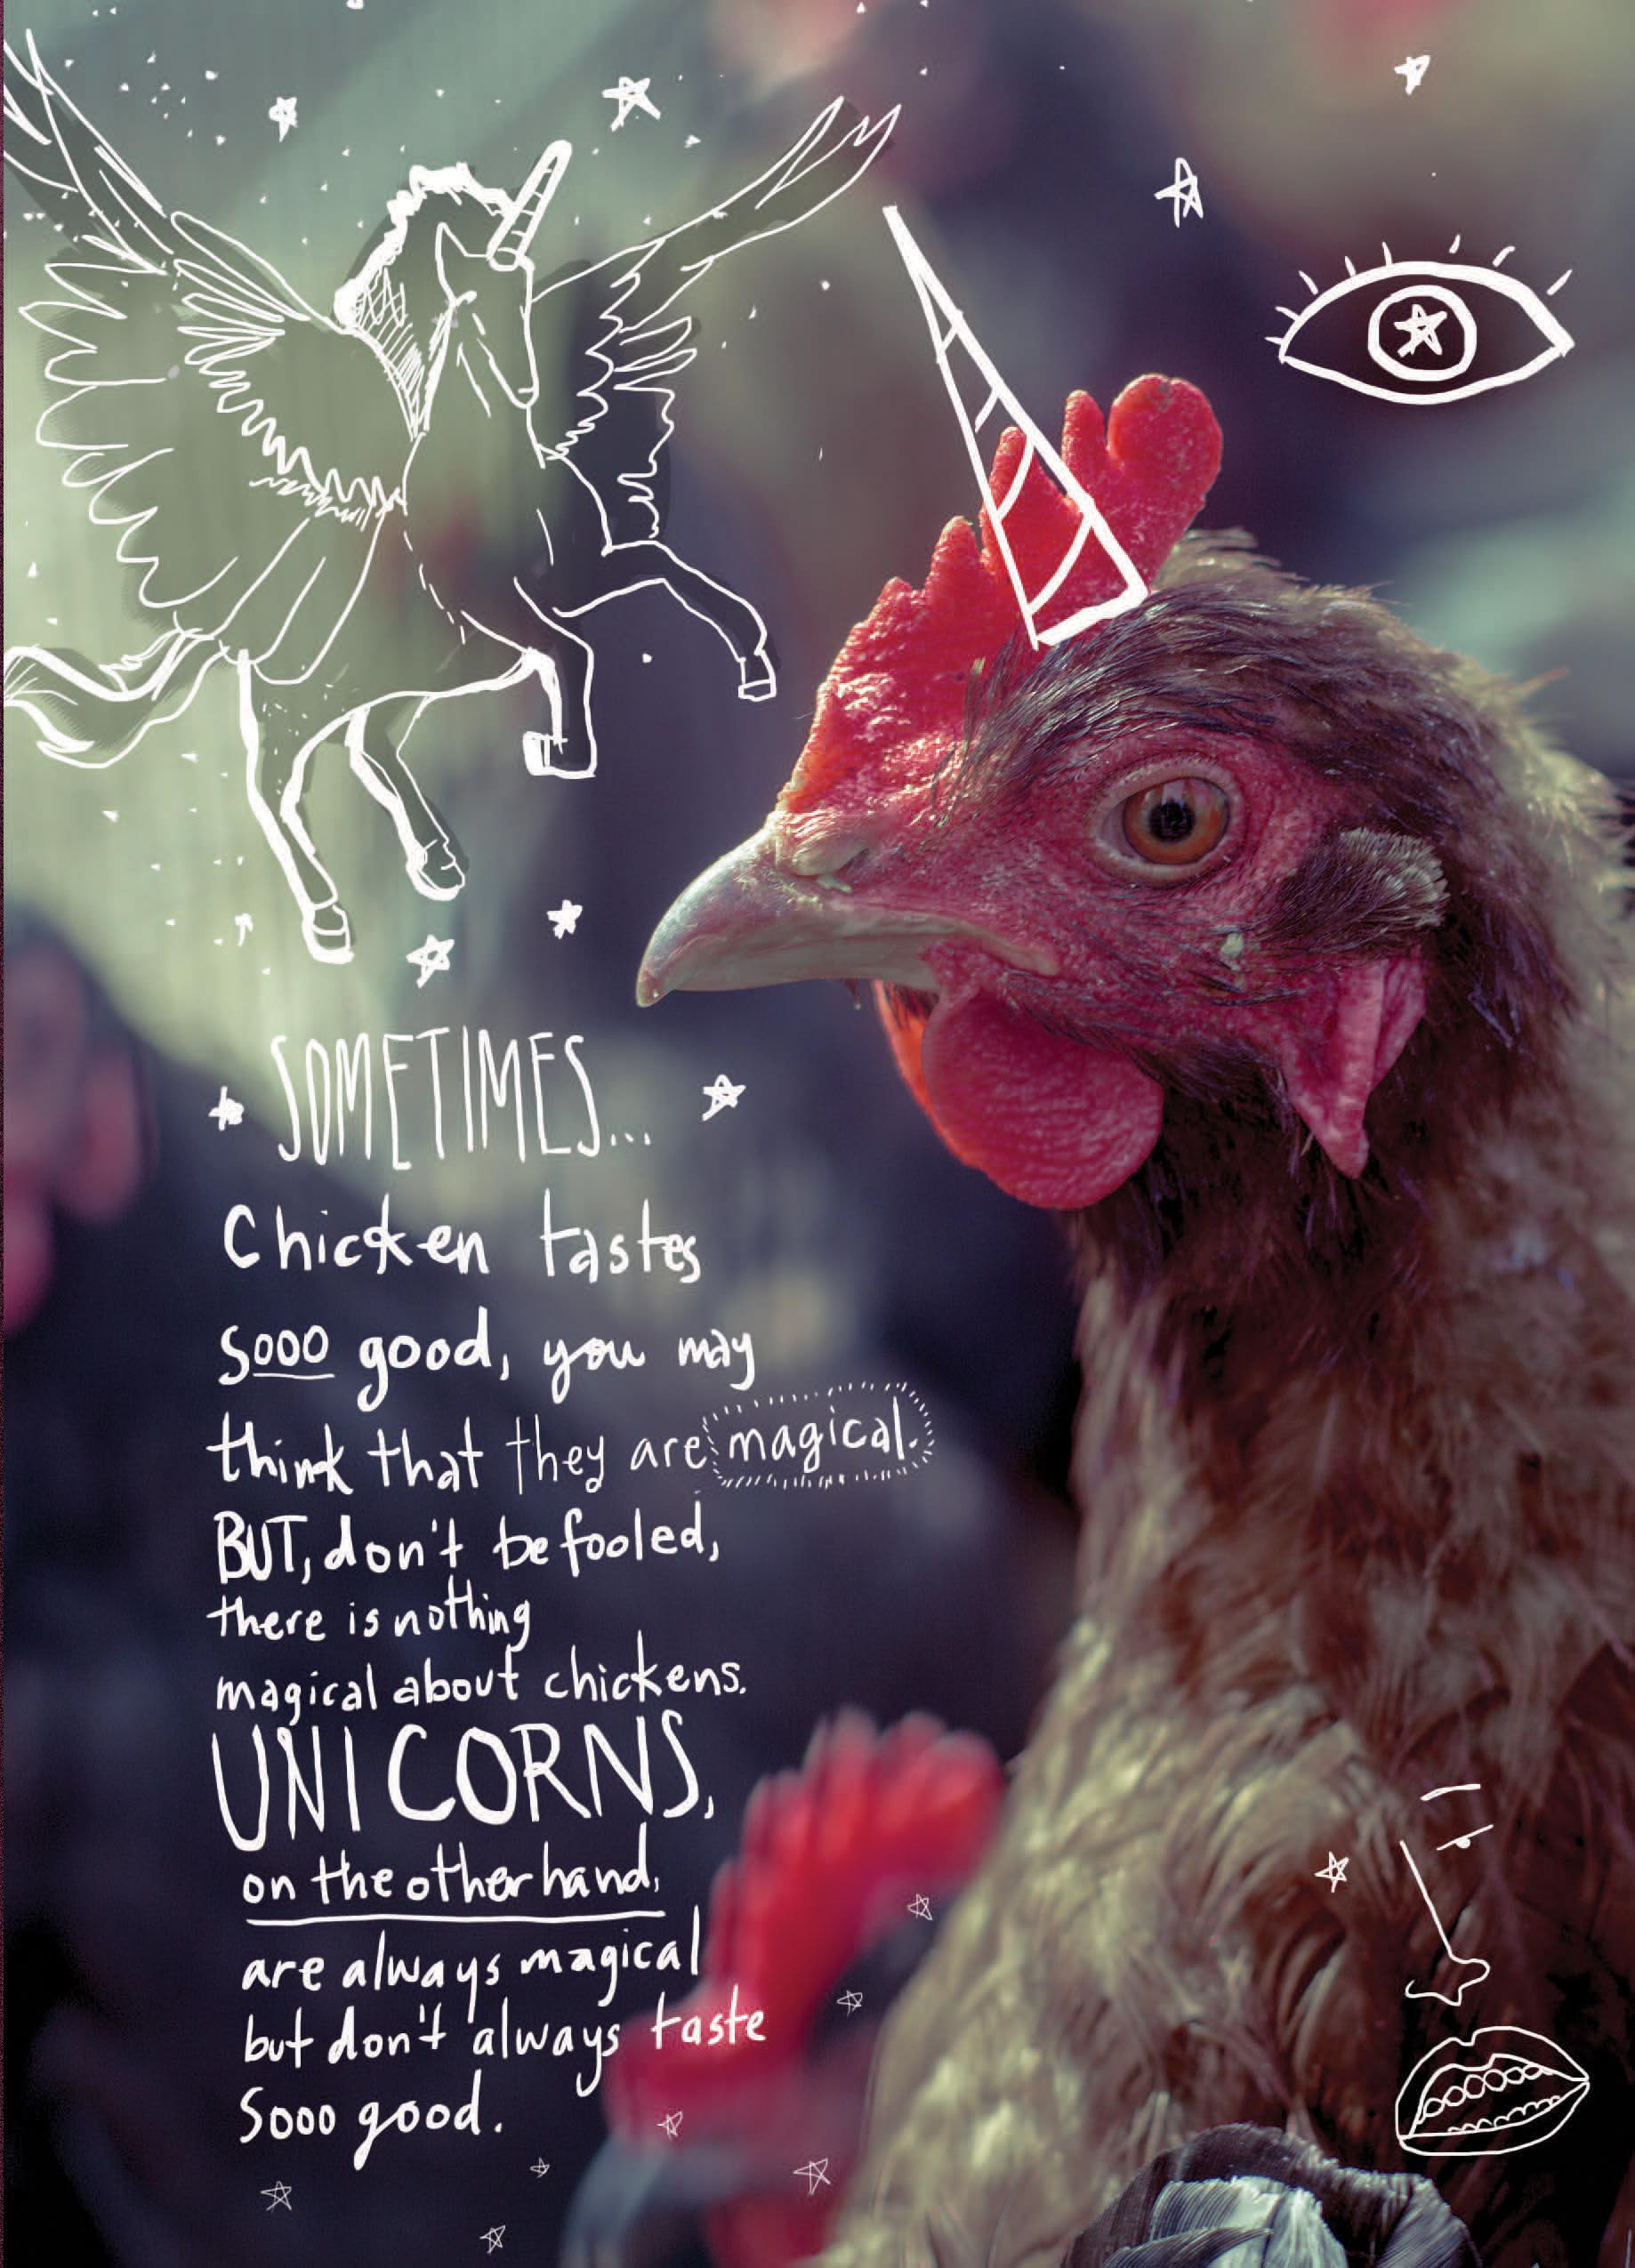 SOMETIMES...
Chicken tastes
sooo good, you may
think that they are magical.
BUT, don't be fooled,
there is nothing
magical about chickens.
UNICORNS,
on the other hand,
are always magical
but don't always taste
Sooo good.